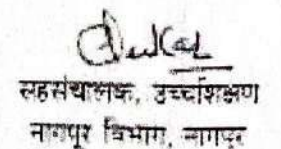 सहसंचालक, उच्चशिक्षण
नागपूर विभाग, नागपूर